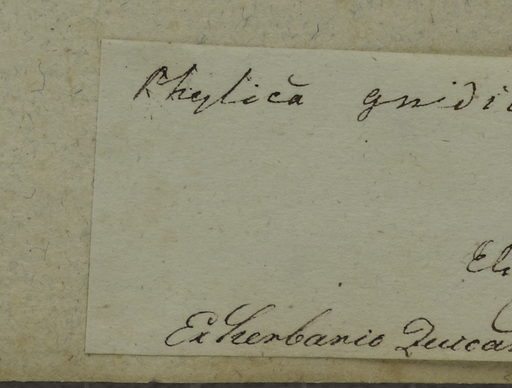 Phylica gnidi
El
Ex Herbario Duicar